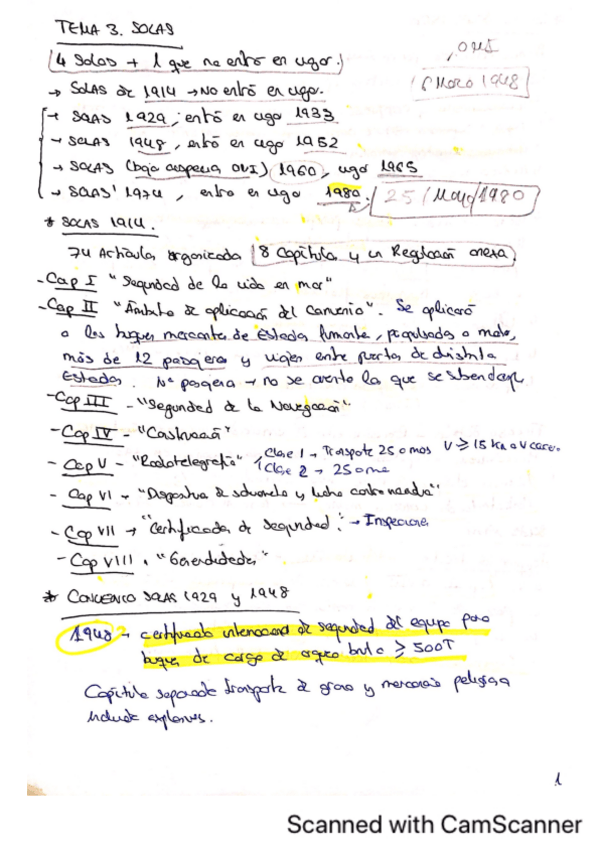 TEMA 3. SOLAS
4 Solas + 1 que no entró en vigor.
, OMI
6 Marzo 1948
→ SOLAS de 1914 → No entró en vigor.
→ SOLAS 1929, entró en vigo 1933
→ SOLAS 1948, entró en vigo 1952
→ SOLAS (bajo auspicia OMI) 1960, vigo 1965
→ SOLAS 1974, entro en vigo 1980. 25/Mayo/1980
* SOLAS 1914.
74 Artículos organizada 8 Capítulos y un Reglamento anexo.
- Cap I "Seguridad de la vida en mar"
- Cap II "Ámbito de aplicación del Convenio". Se aplicará
a los buques mercantes de Estados firmante, propulsados a motor,
más de 12 pasajeros y viajes entre puertos de distinto
Estados. Nº pasajeros → no se cuenta la que se
- Cap III - "Seguridad de la Navegación"
- Cap IV - "Construcción"
- Cap V - "Radiotelegrafía" Clase 1 → Transporte 25 o más V ≥ 15 kn
Clase 2 → 25 o me
- Cap VI - "Dispositivo de salvamento y lucha contra incendio"
- Cap VII → "Certificado de Seguridad." → Inspecciones
- Cap VIII. "Generalidades"
* CONVENIO SOLAS 1929 y 1948
1948 → certificado internacional de seguridad del equipo para
buques de carga de arqueo bruto ≥ 500T
Capítulo separado transporte de grano y mercancías peligrosa
incluido explosivos.
1
Scanned with CamScanner